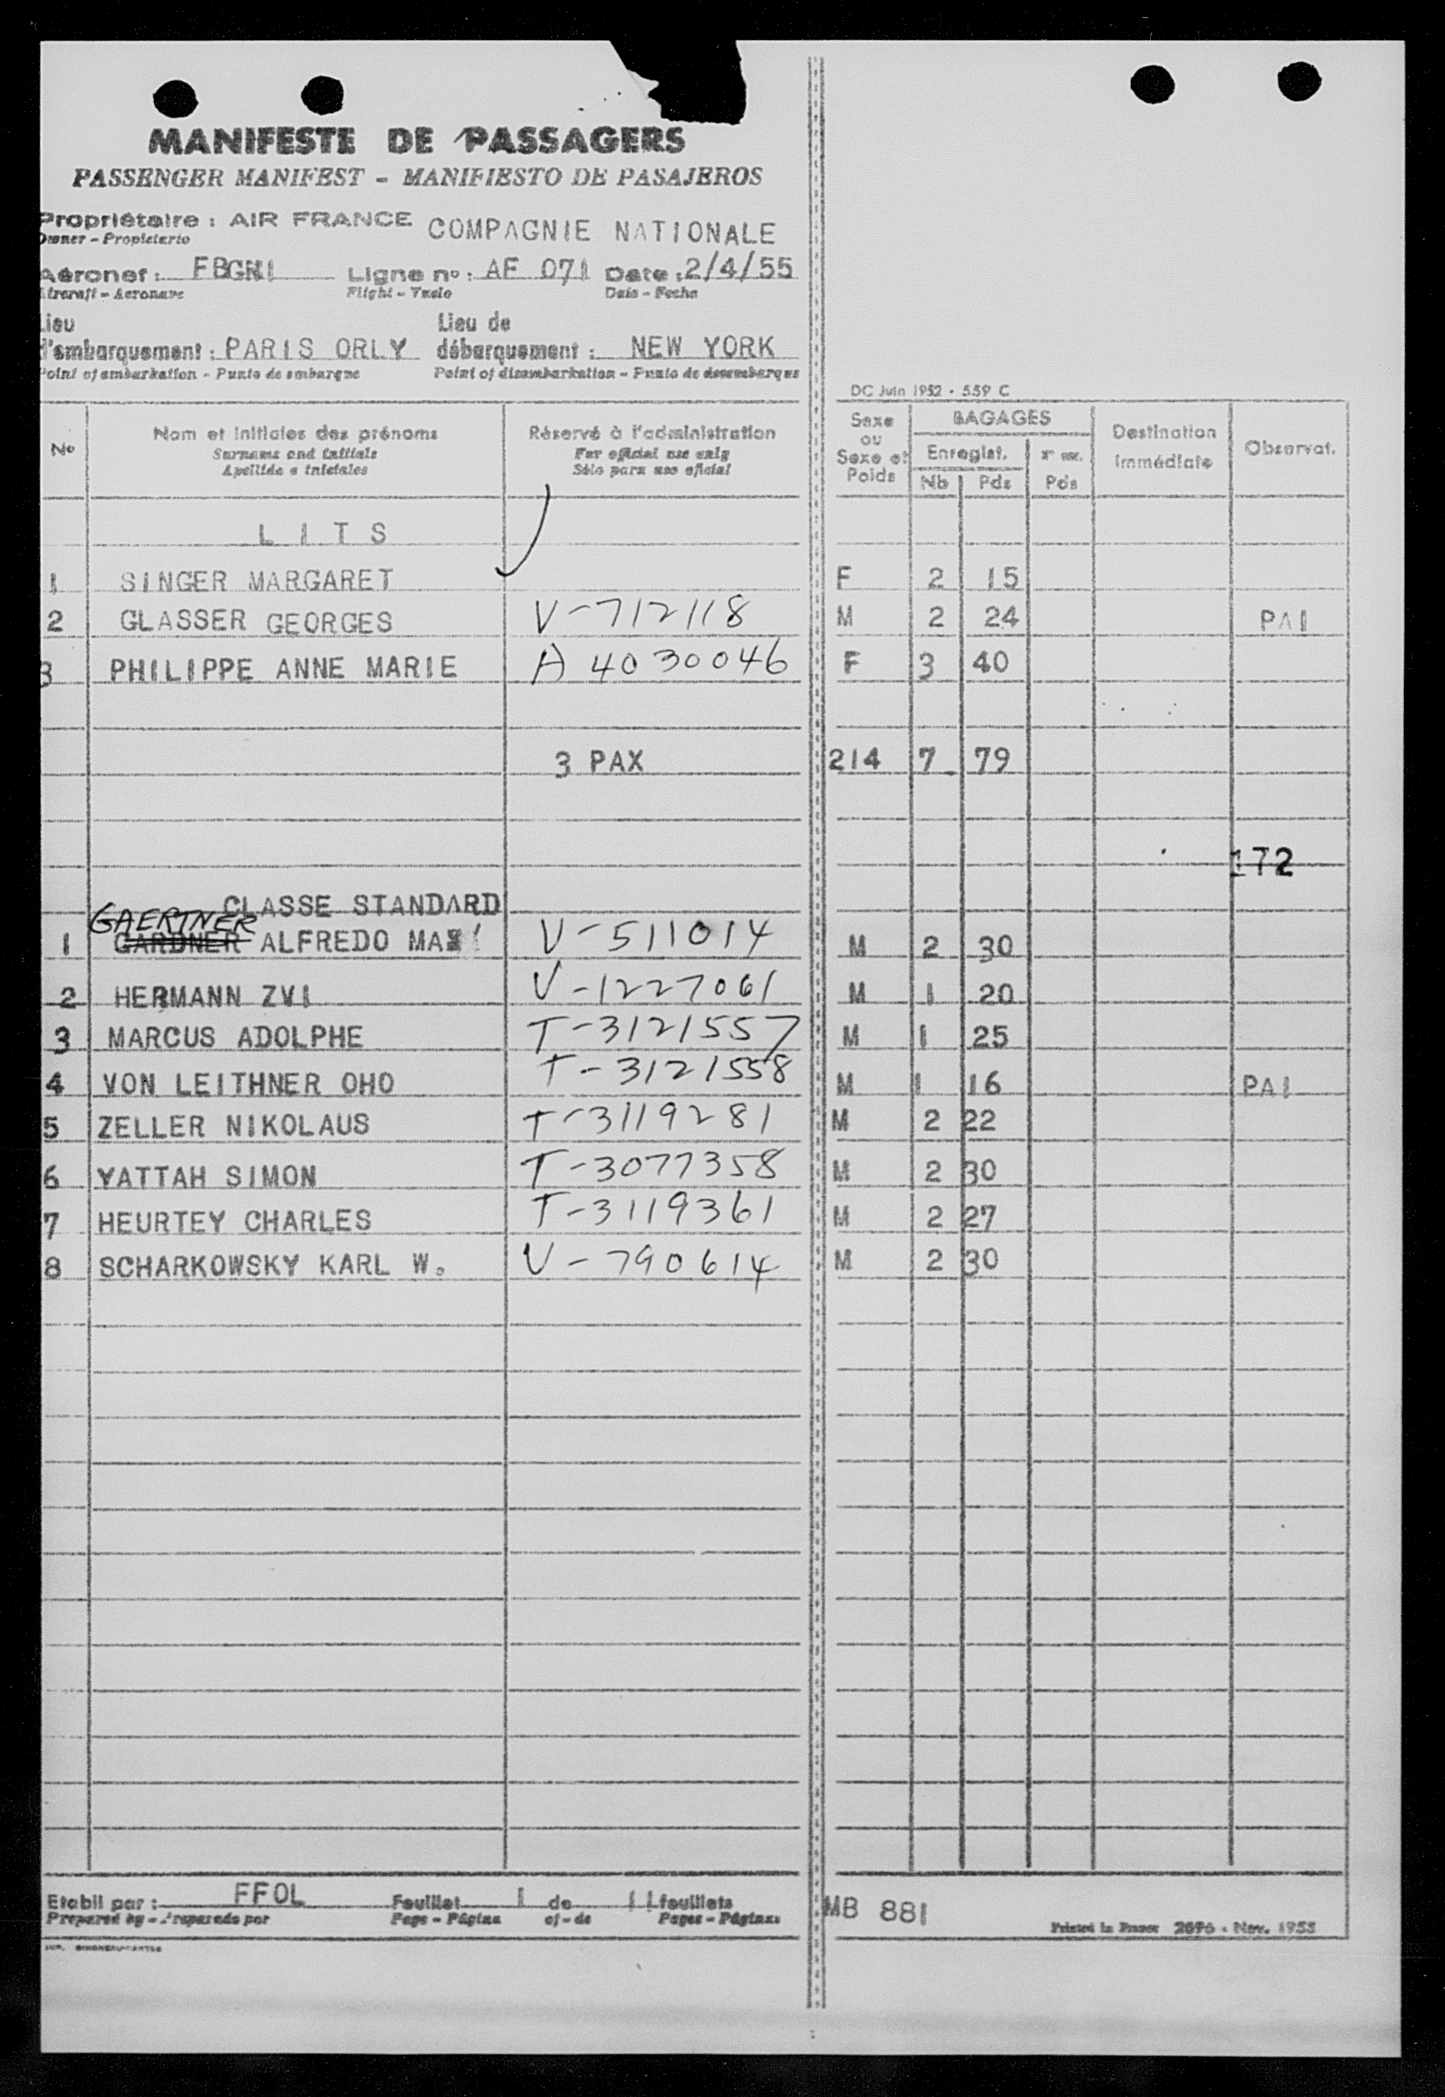 MANIFESTE DE PASSAGERS
PASSENGER MANIFEST - MANIFIESTO DE PASAJEROS
Propriétaire : AIR FRANCE COMPAGNIE NATIONALE
Owner - Propietario
Aéronef : FBGNI Ligne nº : AF 071 Date : 2/4/55
Aircraft - Aeronave Flight - Vuelo Date - Fecha
Lieu Lieu de
d'embarquement : PARIS ORLY débarquement : NEW YORK
Point of embarkation - Punto de embarque Point of disembarkation - Punto de desembarque
DC Juin 1952 - 559 C
Nº Nom et initiales des prénoms Réservé à l'administration Sexe ou Sexe et Poids BAGAGES Destination immédiate Observat.
Surname and initials For official use only Enregist.
Apellido e iniciales Sólo para uso oficial Nb Pds Pds
LITS
1 SINGER MARGARET F 2 15
2 GLASSER GEORGES V-712118 M 2 24 PAI
3 PHILIPPE ANNE MARIE A 4030046 F 3 40
3 PAX 214 7 79
172
CLASSE STANDARD
GAERTNER
1 GARDNER ALFREDO V-511014 M 2 30
2 HERMANN ZVI V-1227061 M 1 20
3 MARCUS ADOLPHE T-3121557 M 1 25
4 VON LEITHNER OHO T-3121558 M 1 16 PAI
5 ZELLER NIKOLAUS T-3119281 M 2 22
6 YATTAH SIMON T-3077358 M 2 30
7 HEURTEY CHARLES T-3119361 M 2 27
8 SCHARKOWSKY KARL W. V-790614 M 2 30
Etabli par : FFOL Feuillet 1 de 1 feuillets MB 881
Prepared by - Preparado por Page - Página of - de Pages - Páginas Printed in France 2696 - Nov. 1953